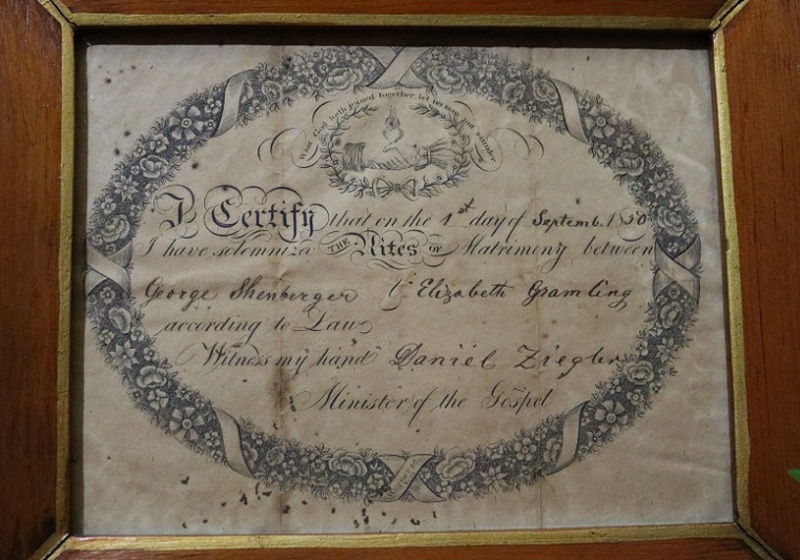 What God hath joined together let no man put asunder.
I Certify that on the 1st day of Septemb. 1850
I have solemnized THE Rites OF Matrimony between
George Shenberger & Elizabeth Gramling
according to Law
Witness my hand Daniel Ziegler
Minister of the Gospel